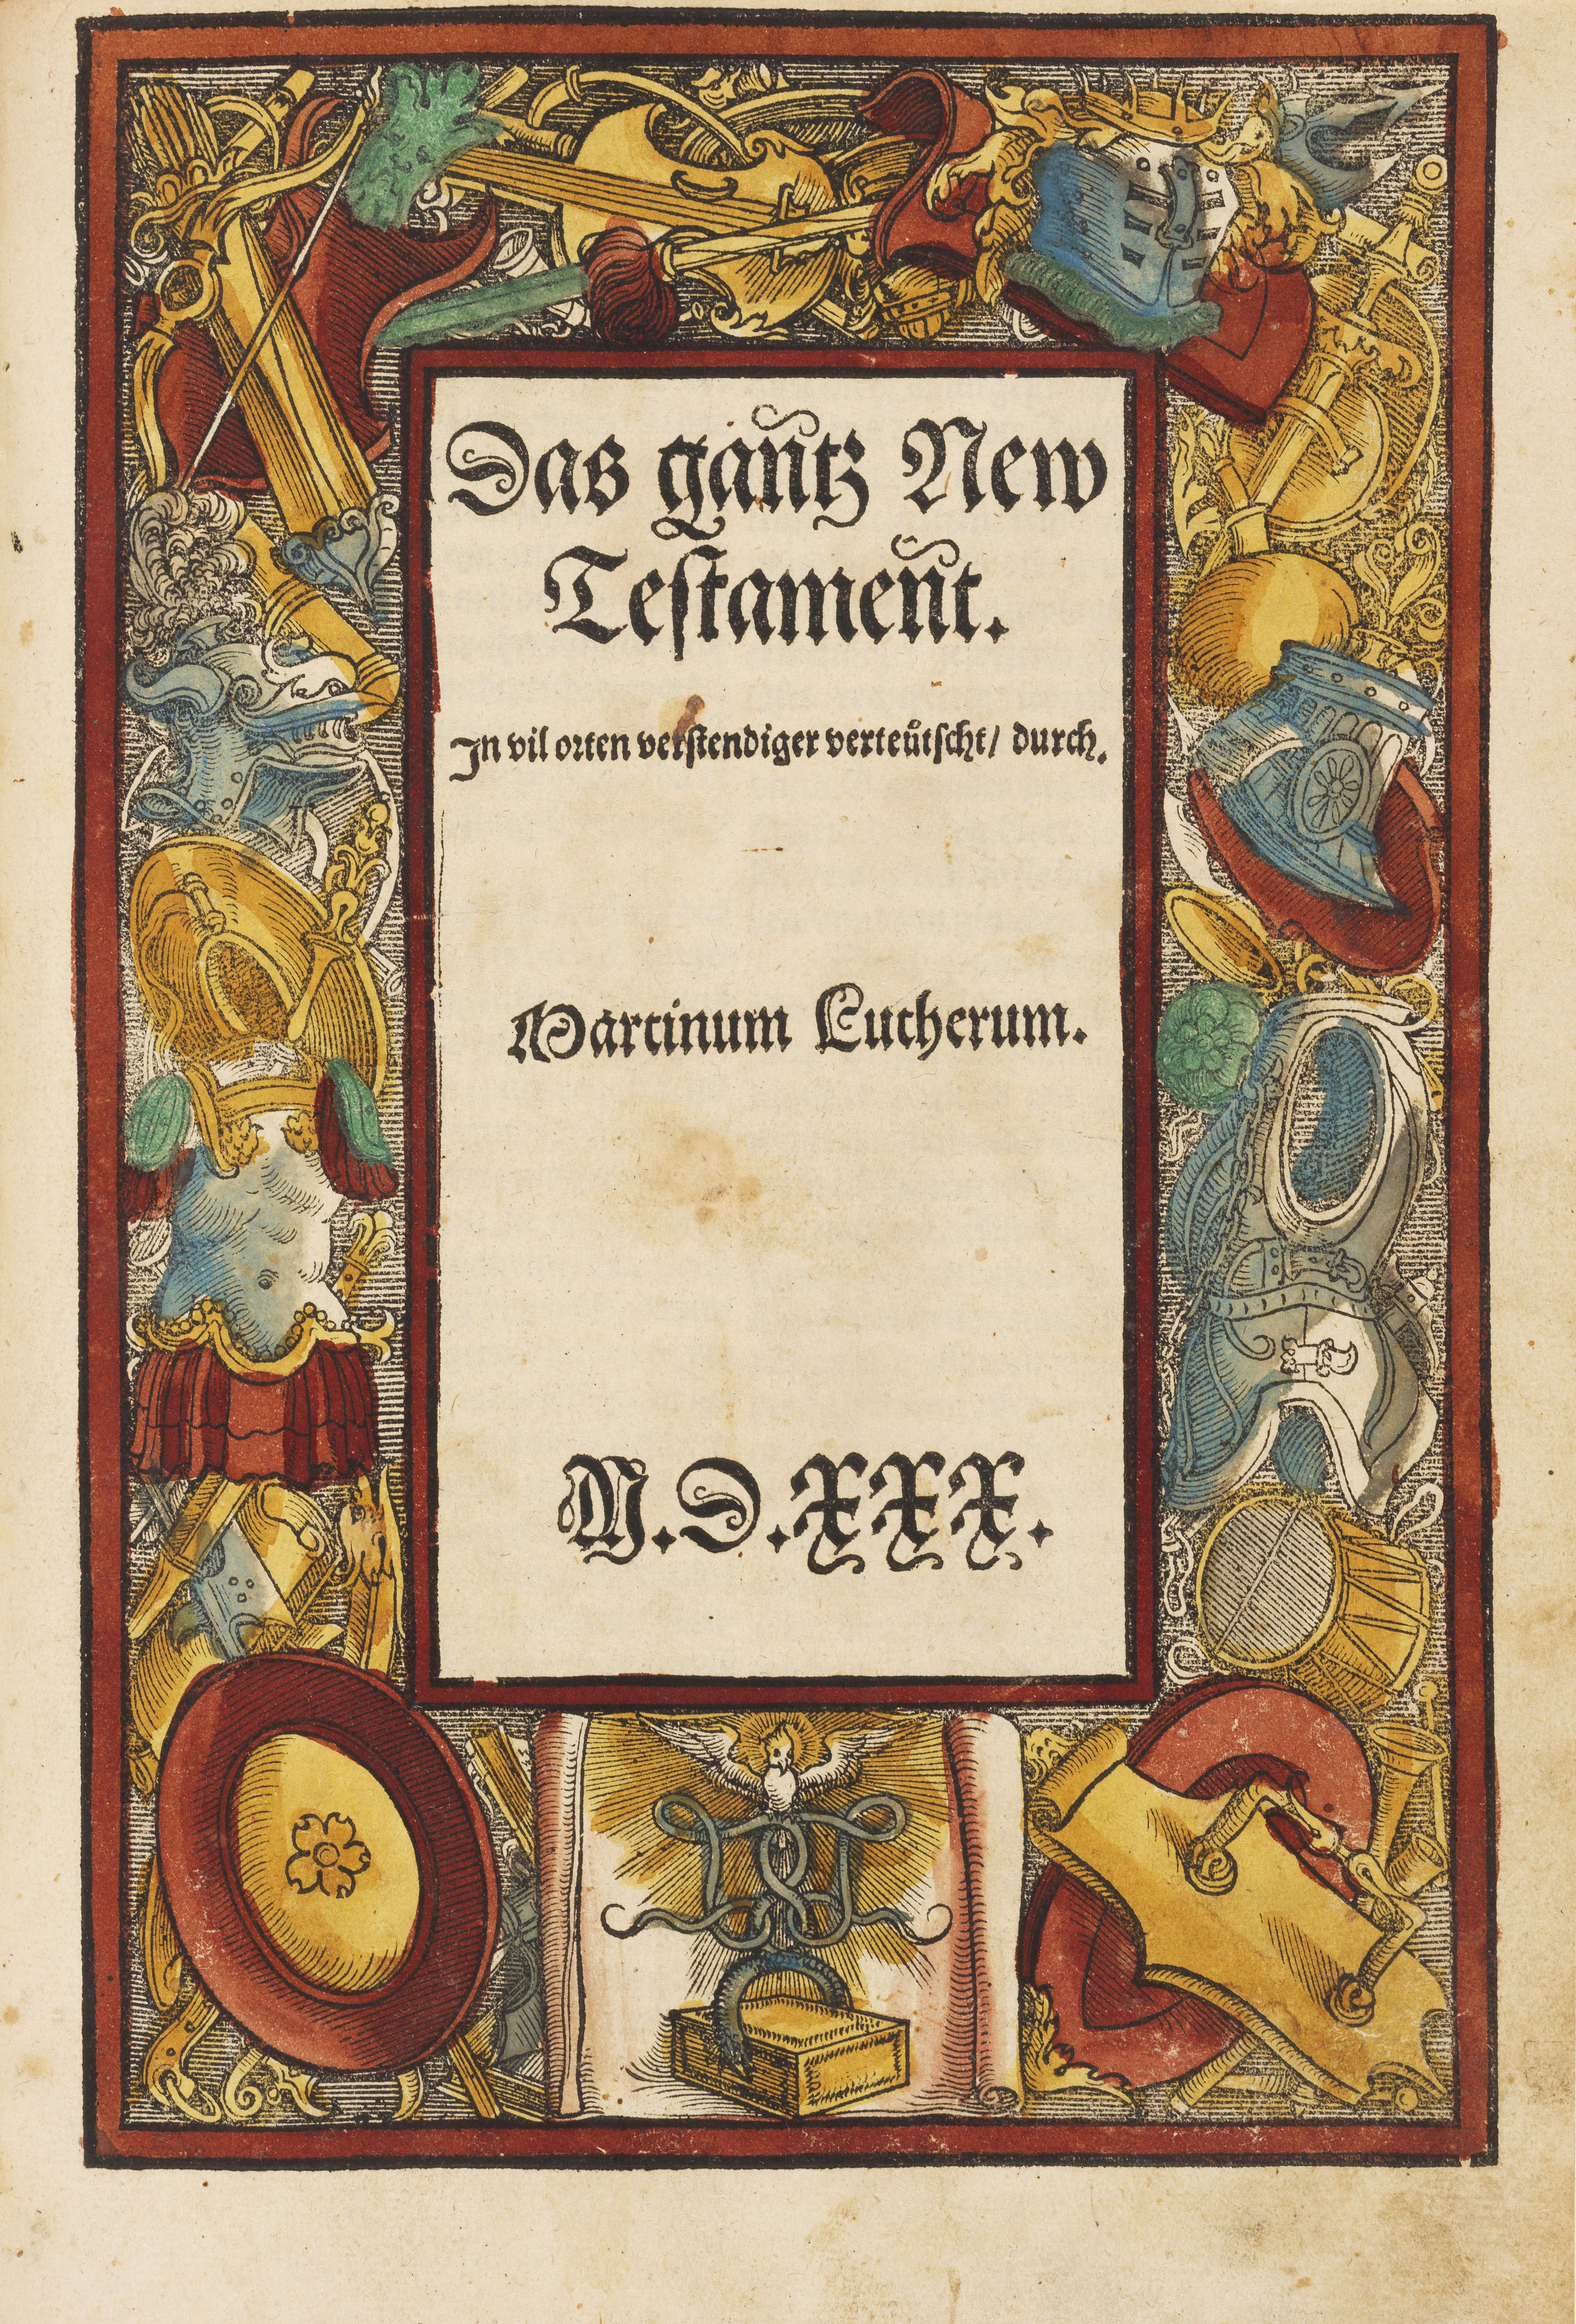 Das gantz New
Testament.
In vil orten verstendiger verteütscht/ durch.
Martinum Lutherum.
M.D.XXX.